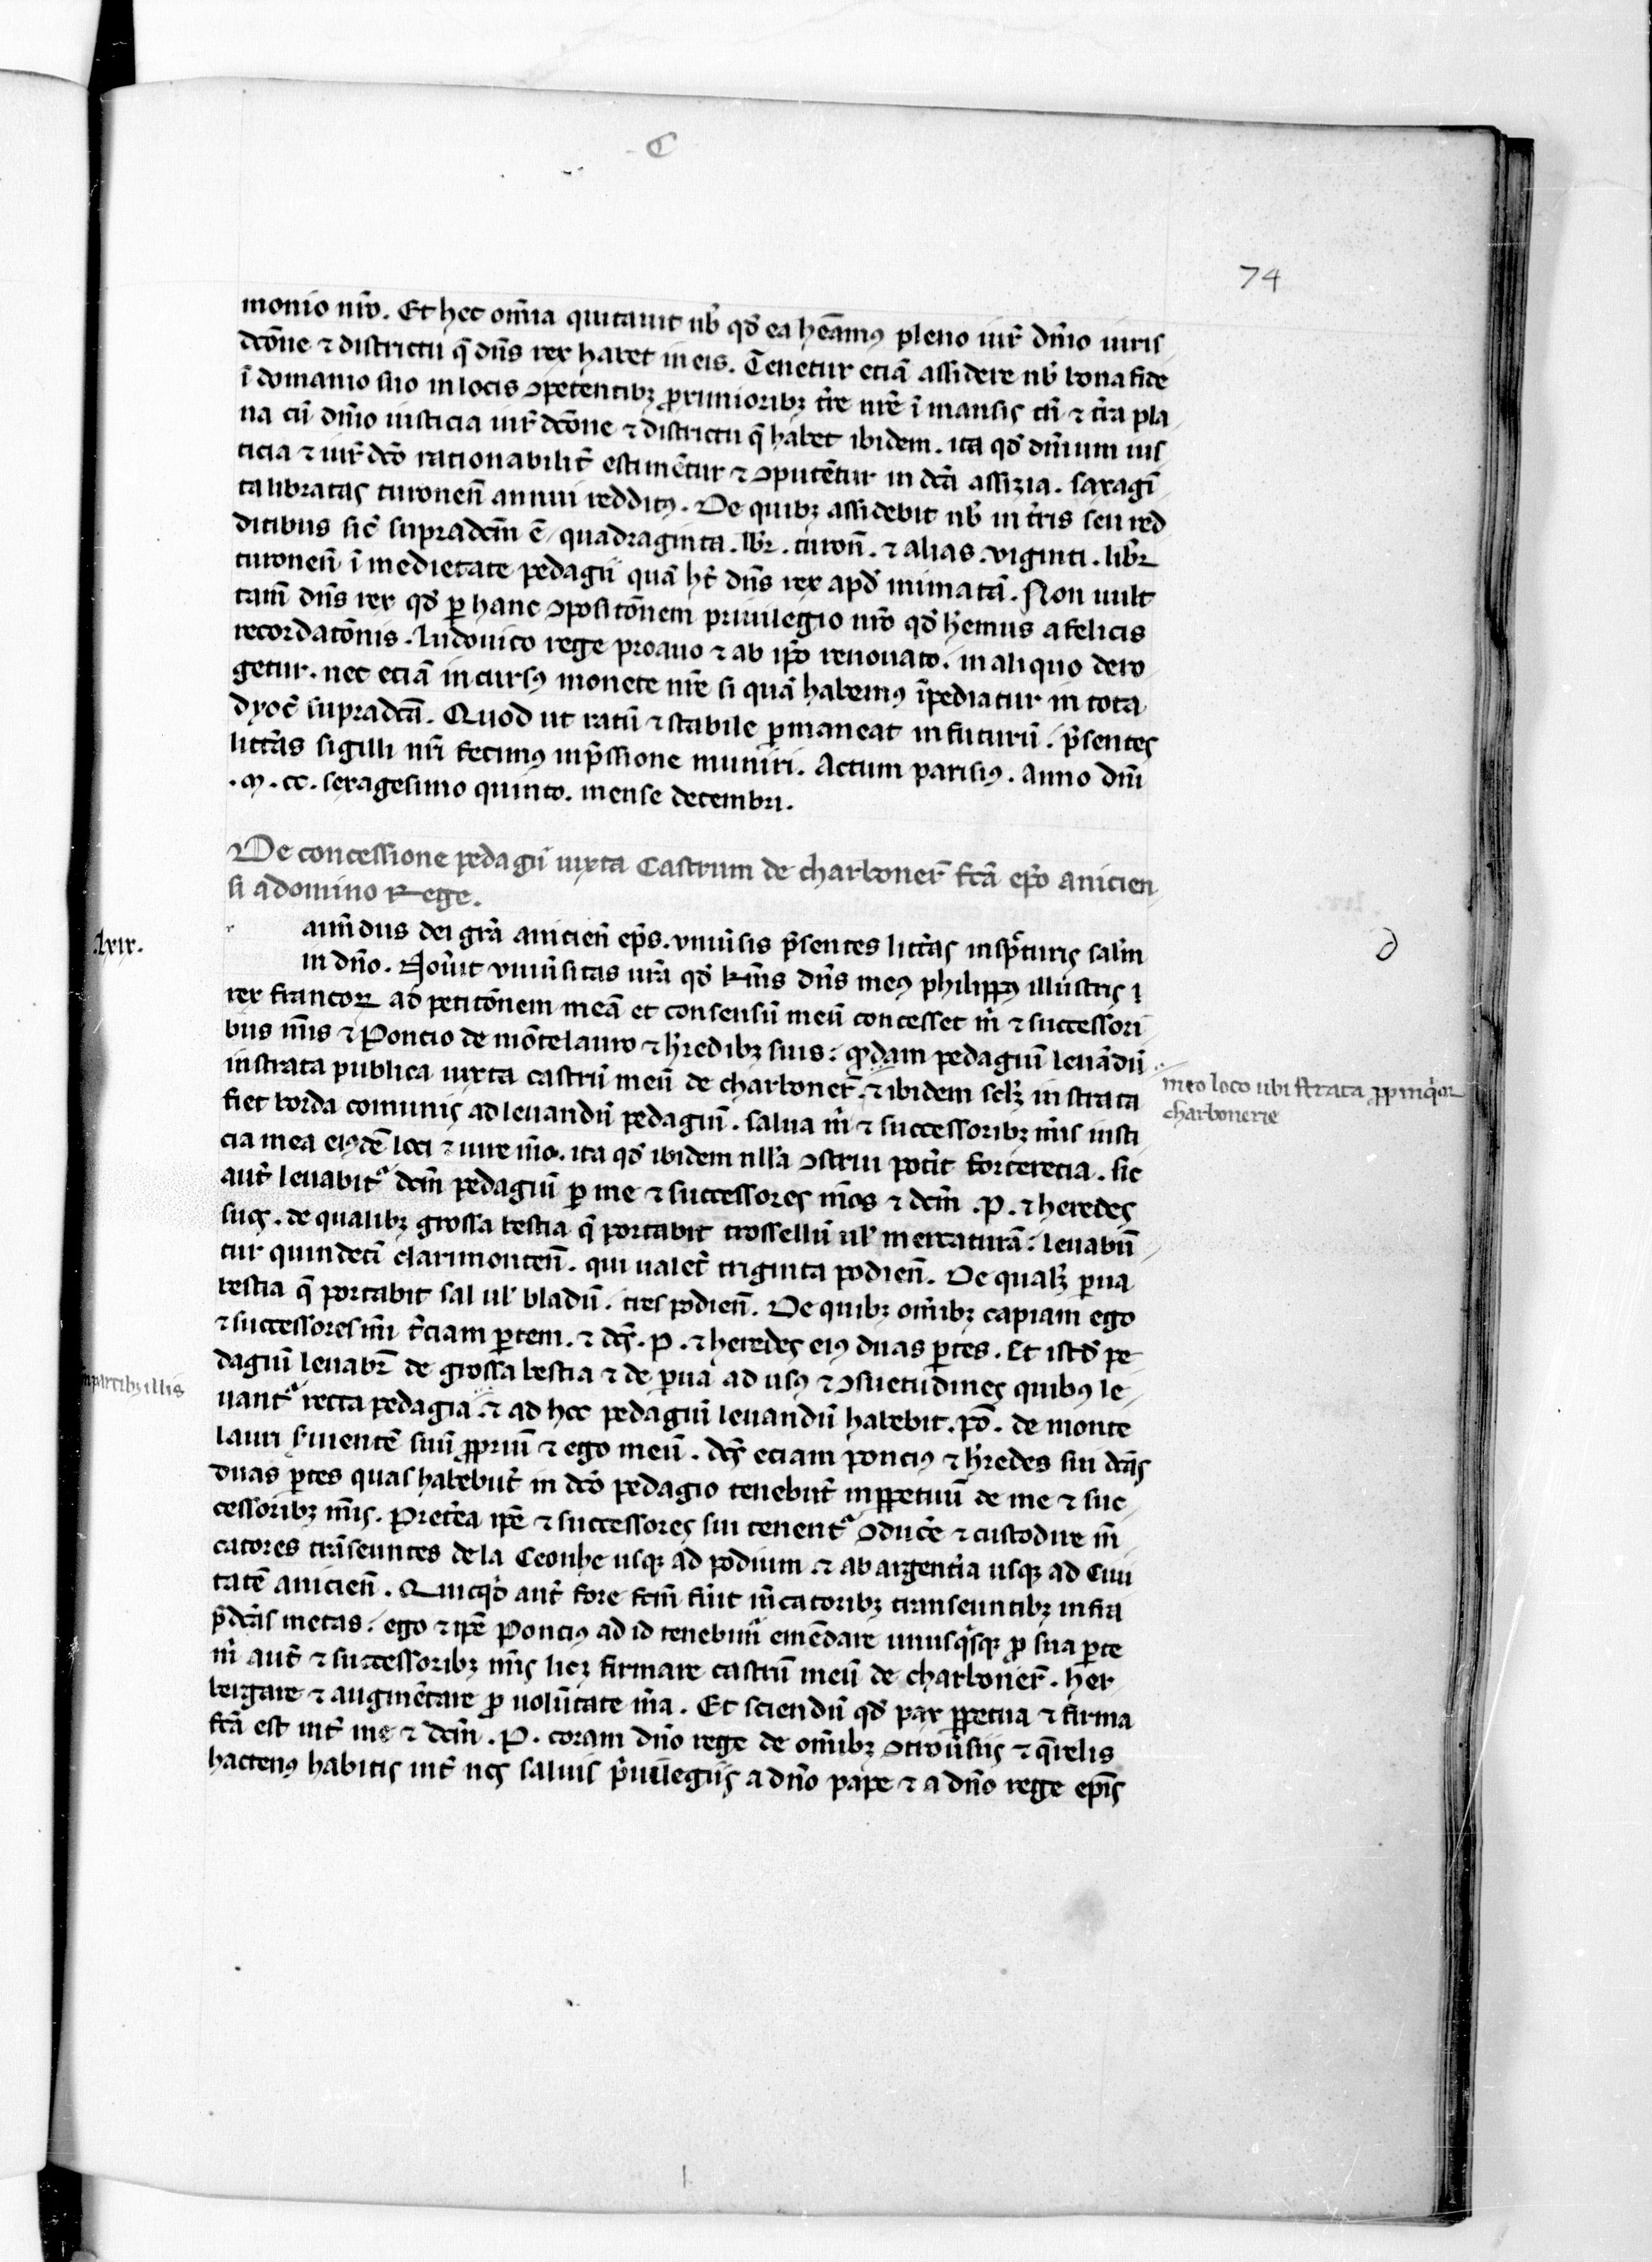 C
74
monio nr̄o. Et hec om̄ia quitauit nob̄ qd̓ ea hēamꝰ pleno iur̓ dn̄io iuris
dcōne ⁊ districtu q̄ dn̄s rex habet in eis. Tenetur eciā assidere nob̄ bona fide
ī domanio suo in locis ꝯpetentibꝫ ꝓximioribꝫ t̓re nr̄e ī mansis cū ⁊ t̓ra pla
na cū dn̄io iusticia iur̓ dcōne ⁊ districtu q̄ habet ibidem. ita qd̓ dn̄ium ius
ticia ⁊ iur̓ dcō rationabilit̓ estimētur ⁊ ꝯputētur in dcā assizia. saxagī
ta libratas turonen̄ annui redditꝰ. De quibꝫ assidebit nob̄ in t̓ris seu red
ditibus sic̓ supradcm̄ ē quadraginta. libr̄. turon̄. ⁊ alias. viginti. libr̄
turonen̄ ī medietate pedagii quā hʒ̓ dn̄s rex apd̓ mimatā. Non uult
tam̄ dn̄s rex qd̓ ꝑ hanc ꝯpositōnem priuilegio nr̄o qd̓ hēmus a felicis
recordatōnis. ludouico rege proauo ⁊ ab ip̄o renouato. in aliquo dero
getur. nec eciā in cursꝰ monete nr̄e si quā habemꝰ īpediatur in tota
dyoc̓ supradcā. Quod ut ratū ⁊ stabile ꝑmaneat in futurū. p̄sentes
litt̓as sigilli nr̄i fecimꝰ inp̄ssione muniri. Actum parisiꝰ. Anno dn̄i
.M. cc. sexagesimo quinto. mense decembri.
De concessione pedagii iuxta Castrum de charboner̄ fcā ep̄o anicien
si a domino Rege.
.lxix.
aim̄dus dei gr̄a anicien̄ ep̄s. vniu̓sis p̄sentes litt̓as insp̄turis sal̄m
in dn̄o. Nou̓it vniu̓sitas ur̄a qd̓ km̄s dn̄s meꝰ philippꝰ illustris
rex francoꝝ ad petitōnem meā et consensū meū concesset m̄ ⁊ successori
bus meis ⁊ Poncio de mōtelauro ⁊ h̓redibꝫ suis. quodam pedagiū leuādū
in strata publica iuxta castrū meū de charboner̄. ⁊ ibidem scl̓ꝫ in strata
in eo loco ubi strata ꝓpinq̓or
charbonerie
fiet borda comunis ad leuandū pedagiū. salua m̄ ⁊ successoribꝫ meis iusti
cia mea eiꝰdē loci ⁊ iure meo. ita qd̓ ibidem nll̓a ꝯstrui pot̓it fortericia. sic
aut̓ leuabit᷑ dcm̄ pedagiū ꝑ me ⁊ successores meos ⁊ dcm̄ .P. ⁊ heredes
suos. de qualibꝫ grossa bestia q̄ portabit trossellū ul̓ mercaturā. leuabū
tur quindecī clarimonten̄. qui ualēt triginta podien̄. De qual̓ꝫ ꝑua
bestia q̄ portabit sal ul̓ bladū. tres podien̄. De quibꝫ om̄ibꝫ capiam ego
⁊ successores mei t̓ciam ꝑtem. ⁊ dcs̄. P. ⁊ heredes eiꝰ duas ꝑtes. Et istd̓ pe
dagiū leuabr̄ de grossa bestia ⁊ de ꝑua ad usꝰ ⁊ ꝯsuetudines quibꝰ le
in partibꝫ illis
uant᷑ recta pedagia. ⁊ ad hoc pedagiū leuandū habebit. pō. de monte
lauri s̓uientē suū ꝓprium ⁊ ego meū. dcs̄ eciam poncius ⁊ h̓redes sui dcās
duas ꝑtes quas habebūt in dcō pedagio tenebūt inꝑpetuū de me ⁊ suc
cessoribꝫ meis. Preterea ip̄e ⁊ successores sui tenent᷑ ꝯduce̓ ⁊ custodire m̓
catores trāseuntes de la Ceonhe usqꝫ ad podium ⁊ ab argent̓ia usqꝫ ad Ciui
tatē anicien̄. Quicqd̓ aut̓ fore fcm̄ fu̓it m̓catoribꝫ transeuntibꝫ infra
p̄dcās metas. ego ⁊ ip̄e Ponciꝰ ad id tenebim̓ emēdare unusq̓sqꝫ ꝓ sua ꝑte
m̄ aut̓ ⁊ successoribꝫ meis licꝫ firmare castrū meū de charboner̄. her
bergare ⁊ augmētare ꝓ volūtate mea. Et sciendū qd̓ pax ꝑpetua ⁊ firma
fcā est int̓ me ⁊ dcm̄ .P. coram dn̄o rege de om̄ibꝫ ꝯtrou̓siis ⁊ q̄relis
hactenꝰ habitis int̓ nos saluis p̓uilegiis a dn̄o papa ⁊ a dn̄o rege epīs